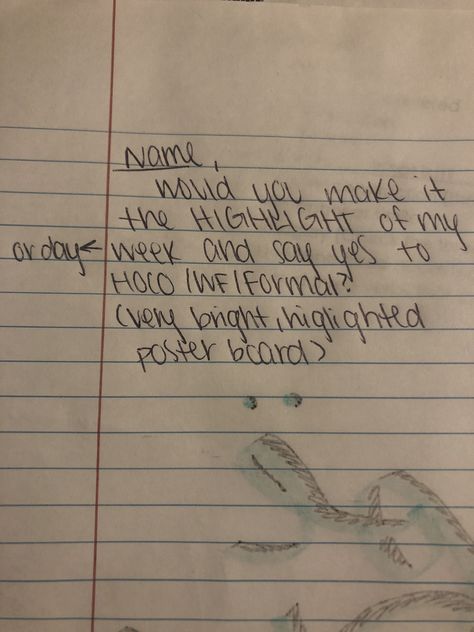 Name,
would you make it
the HIGHLIGHT of my
or day← week and say yes to
HOCO/WF/Formal?!
(very bright, higlighted
poster board)